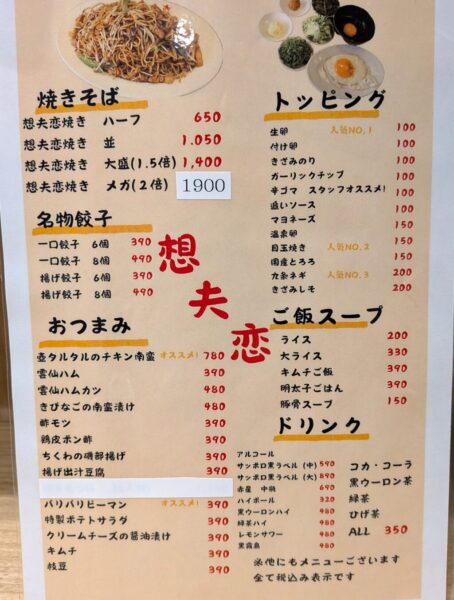 焼きそば
想夫恋焼き ハーフ 650
想夫恋焼き 並 1.050
想夫恋焼き 大盛(1.5倍) 1,400
想夫恋焼き メガ(2倍) 1900
名物餃子
一口餃子 6個 390
一口餃子 8個 490
揚げ餃子 6個 390
揚げ餃子 8個 490
想夫恋
おつまみ
壺タルタルのチキン南蛮 オススメ! 780
雲仙ハム 390
雲仙ハムカツ 480
きびなごの南蛮漬け 480
酢モツ 390
鶏皮ポン酢 390
ちくわの磯部揚げ 390
揚げ出汁豆腐 390
パリパリピーマン オススメ! 390
特製ポテトサラダ 390
クリームチーズの醤油漬け 390
キムチ 390
枝豆 390
トッピング
生卵 人気NO,1 100
付け卵 100
きざみのり 100
ガーリックチップ 100
辛ゴマ スタッフオススメ! 100
追いソース 100
マヨネーズ 100
温泉卵 150
目玉焼き 人気NO,2 150
国産とろろ 150
九条ネギ 人気NO,3 200
きざみしそ 200
ご飯スープ
ライス 200
大ライス 330
キムチご飯 390
明太子ごはん 390
豚骨スープ 150
ドリンク
アルコール
サッポロ黒ラベル (中) 590
サッポロ黒ラベル (大) 890
赤星 中瓶 690
ハイボール 320
黒ウーロンハイ 480
緑茶ハイ 480
レモンサワー 480
黒霧島 480
コカ・コーラ
黒ウーロン茶
緑茶
ひげ茶
ALL 350
※他にもメニューございます
全て税込み表示です